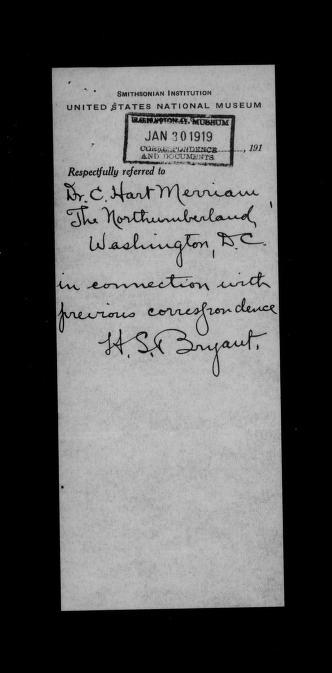 SMITHSONIAN INSTITUTION
UNITED STATES NATIONAL MUSEUM
NATIONAL MUSEUM
JAN 30 1919
CORRESPONDENCE
AND DOCUMENTS
, 191
Respectfully referred to
Dr. C. Hart Merriam,
The Northumberland,
Washington, D.C.
in connection with
previous correspondence
H. S. Bryant.